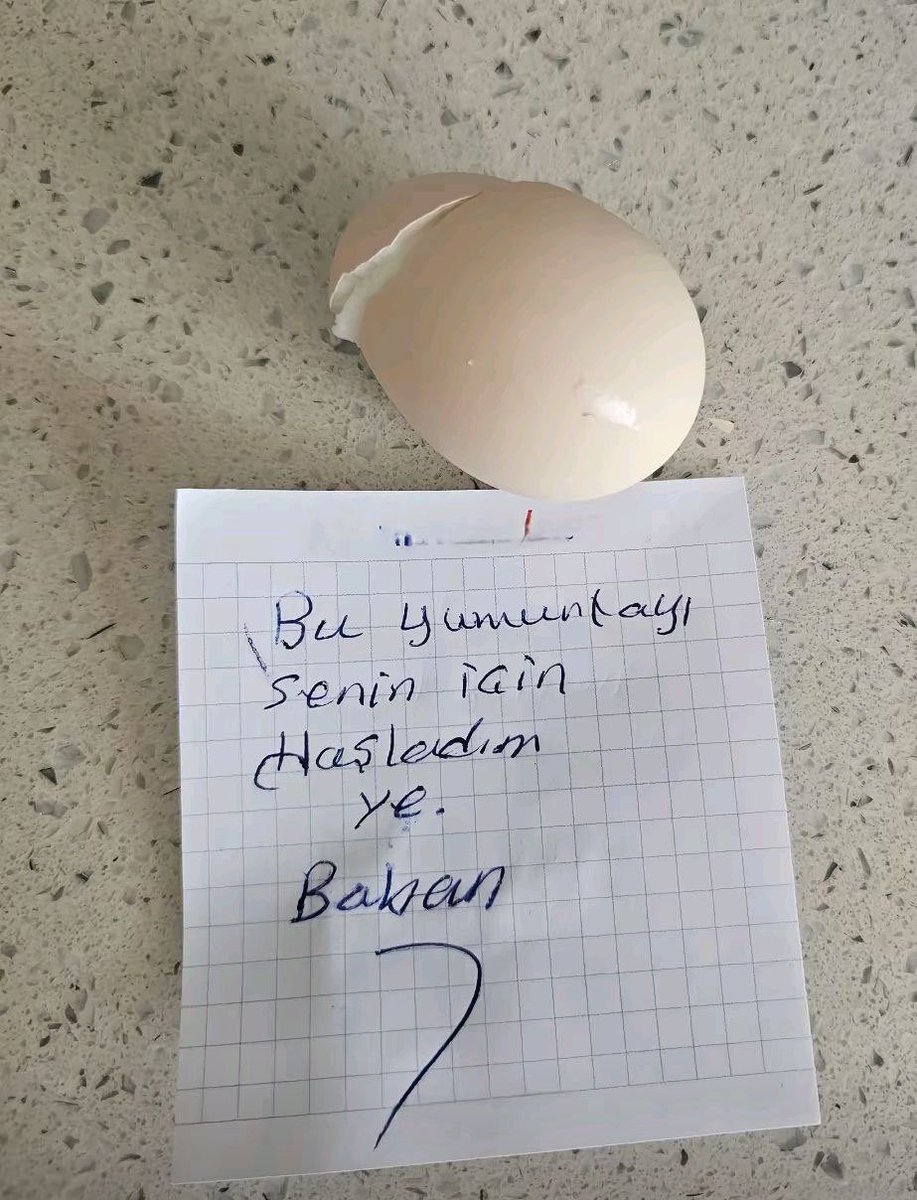 Bu yumurtayı
senin için
Haşladım
ye.
Baban